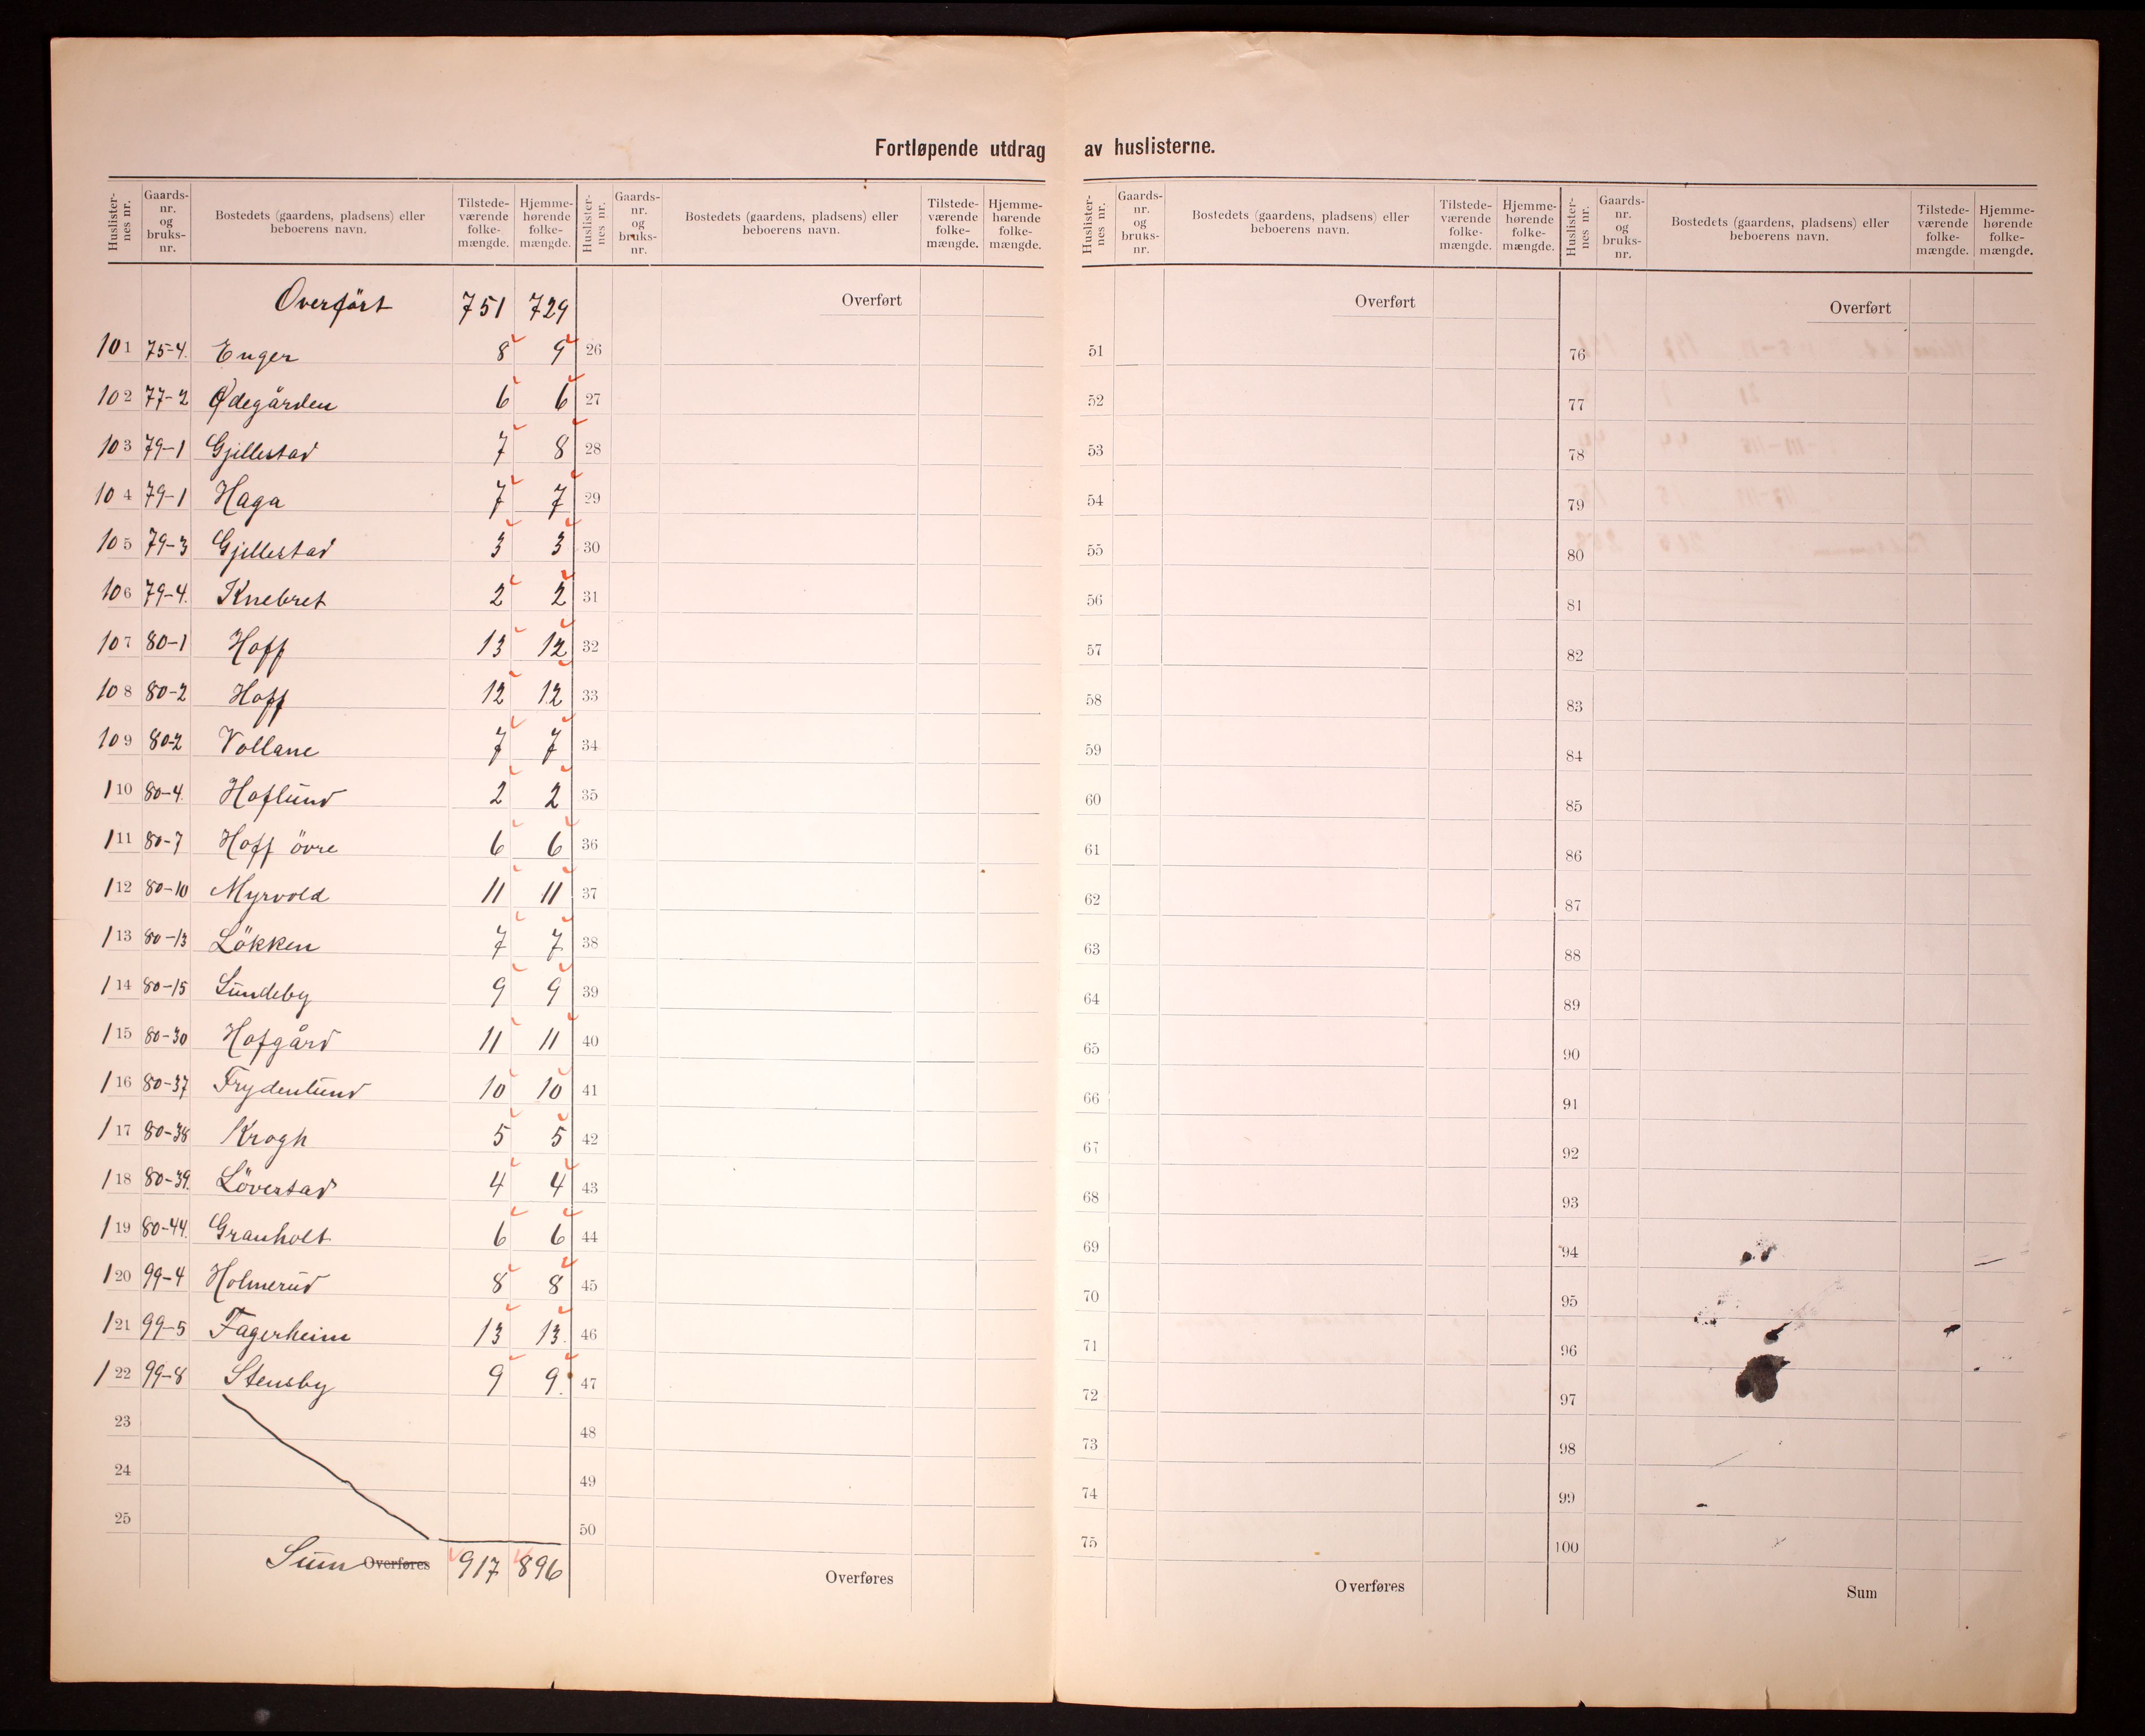 Fortløpende utdrag av huslisterne.
Huslister-nes nr. Gaards-nr. og bruks-nr. Bostedets (gaardens, pladsens) eller beboerens navn. Tilstede-værende folke-mængde. Hjemme-hørende folke-mængde.
Overfört 751 729
101 75-4. Enger 8 9
102 77-2 Ødegården 6 6
103 79-1 Gjillestad 7 8
104 79-1 Haga 7 7
105 79-3 Gjillestad 3 3
106 79-4. Knebret 2 2
107 80-1 Hoff 13 12
108 80-2 Hoff 12 12
109 80-2 Vollane 7 7
110 80-4. Hoflund 2 2
111 80-7 Hoff övre 6 6
112 80-10 Myrvold 11 11
113 80-13 Lökken 7 7
114 80-15 Sundeby 9 9
115 80-30 Hofgård 11 11
116 80-37 Frydenlund 10 10
117 80-38 Krogh 5 5
118 80-39. Löverstad 4 4
119 80-44. Granholt 6 6
120 99-4 Holmerud 8 8
121 99-5 Fagerheim 13 13.
122 99-8 Stensby 9 9.
23
24
25
Sum Overføres 917 896
Huslister-nes nr. Gaards-nr. og bruks-nr. Bostedets (gaardens, pladsens) eller beboerens navn. Tilstede-værende folke-mængde. Hjemme-hørende folke-mængde.
Overført
26
27
28
29
30
31
32
33
34
35
36
37
38
39
40
41
42
43
44
45
46
47
48
49
50
Overføres
Huslister-nes nr. Gaards-nr. og bruks-nr. Bostedets (gaardens, pladsens) eller beboerens navn. Tilstede-værende folke-mængde. Hjemme-hørende folke-mængde.
Overført
51
52
53
54
55
56
57
58
59
60
61
62
63
64
65
66
67
68
69
70
71
72
73
74
75
Overføres
Huslister-nes nr. Gaards-nr. og bruks-nr. Bostedets (gaardens, pladsens) eller beboerens navn. Tilstede-værende folke-mængde. Hjemme-hørende folke-mængde.
Overført
76
77
78
79
80
81
82
83
84
85
86
87
88
89
90
91
92
93
94
95
96
97
98
99
100
Sum